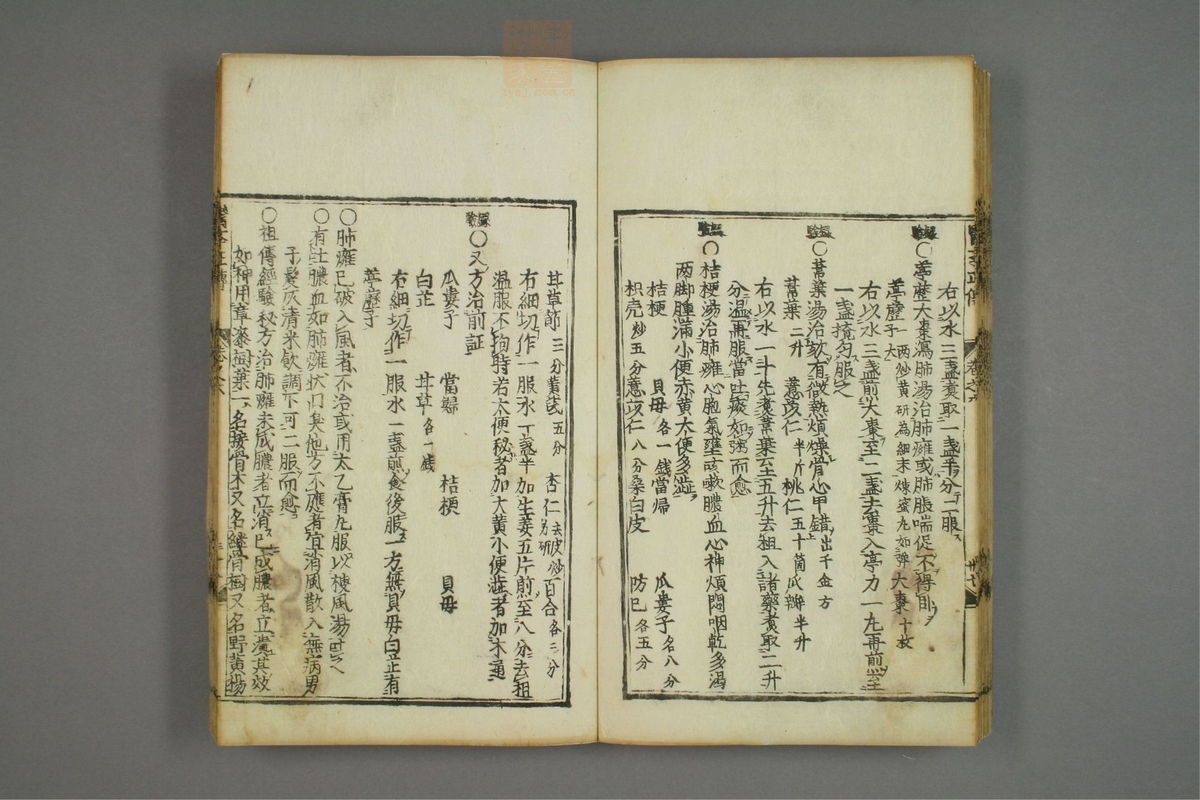 右以水三盞煮取一盞半分二服
○葶藶大棗瀉肺湯治肺癰或肺脹喘促不得臥
葶藶子 一两炒黄研為細末煉蜜丸如弾大 大棗 十枚
右以水三盞煎大棗至二盞去棗入葶力一丸再煎至
一盞攪匀服之
○葦葉湯治欬有微熱煩燥胷心甲錯 出千金方
葦葉 二升 薏苡仁 半斤 桃仁 五十箇 瓜瓣 半升
右以水一斗先煮葦葉至五升去粗入諸藥煮取二升
分温再服當吐膿如粥而愈
○桔梗湯治肺癰心胞氣壅咳嗽膿血心神煩悶咽乾多渴
两脚腫滿小便赤黄大便多澁
桔梗 貝母 各一錢 當帰 瓜蔞子 各八分
枳壳 炒五分 薏苡仁 八分 桑白皮 防已 各五分
甘草節 三分 黄芪 五分 杏仁 去皮炒另研 百合 各三分
右細切作一服水一盞半加生姜五片煎至八分去粗
温服不拘時若大便秘者加大黄小便澁者加木通
○又方治前証
瓜蔞子 當婦 桔梗 貝母
白芷 甘草 各一錢
右細切作一服水一盞煎愈後服一方無貝母白芷有
葶藶子
○肺癰已破入風者不治或用太乙膏丸服以棱風湯
○有吐膿血如肺癰状口臭他方不應者宜消風散入無病男
子髪灰清米飲調下可二服而愈
○祖傳經驗秘方治肺癰未成膿者立消已成膿者立潰其效
如神用章漆樹葉一名接骨木又名継骨樹又名野黄楊